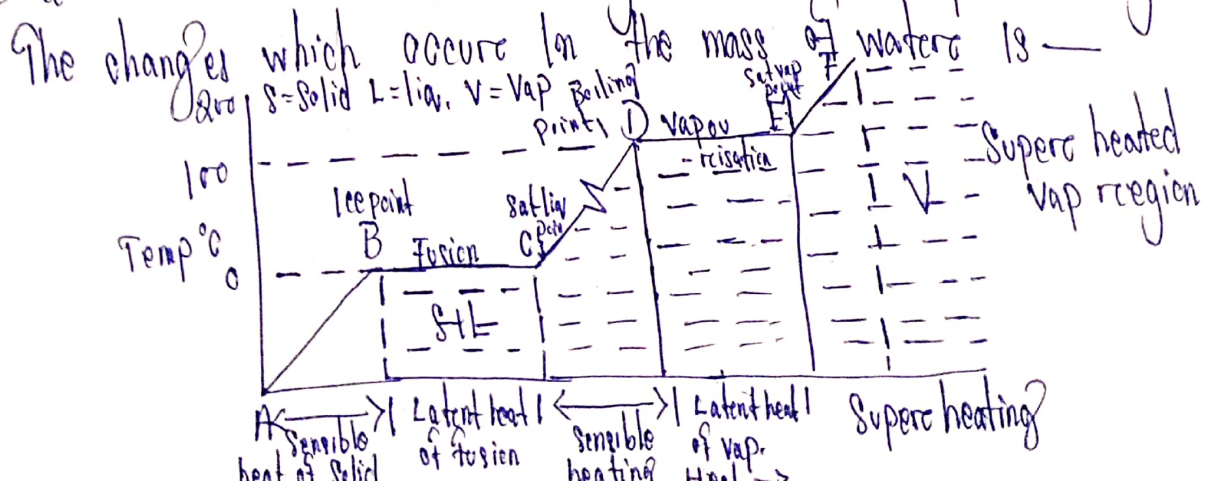 The changes which occure In the mass of watere is —
200 S=Solid L=liq. V=Vap Boiling Point, D Vapou E Sat vap point F
-reisation
100
Supere heated vap reegion
Ice point
B Fusion C Sat liq Poin
V
Temp°C
0
S+L
A Sensible heat of Solid
Latent heat of fusion
Sensible heating
Latent heat of vap.
Supere heating
Heat →